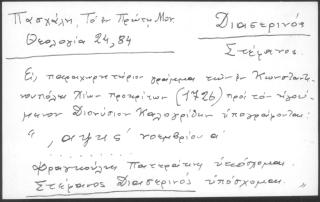 Πασχάλη, Τό ἐν Πρώτῃ Μον.
Θεολογία 24, 84
Διασερινός
Στέφανος.
Εἰς παραχωρητήριον γράμμα τῶν ἐν Κωνσταντι-
νουπόλει Χίων προκρίτων (1726) πρός τόν ἡγού-
μενον Διονύσιον Καλογρίδην ὑπογράφονται:
", αψκς' νοεμβρίου α'
. . . . . . . . .
Φραγκούλης Πατεράκης ὑπόσχομαι.
Στέφανος Διασερινός ὑπόσχομαι.
"